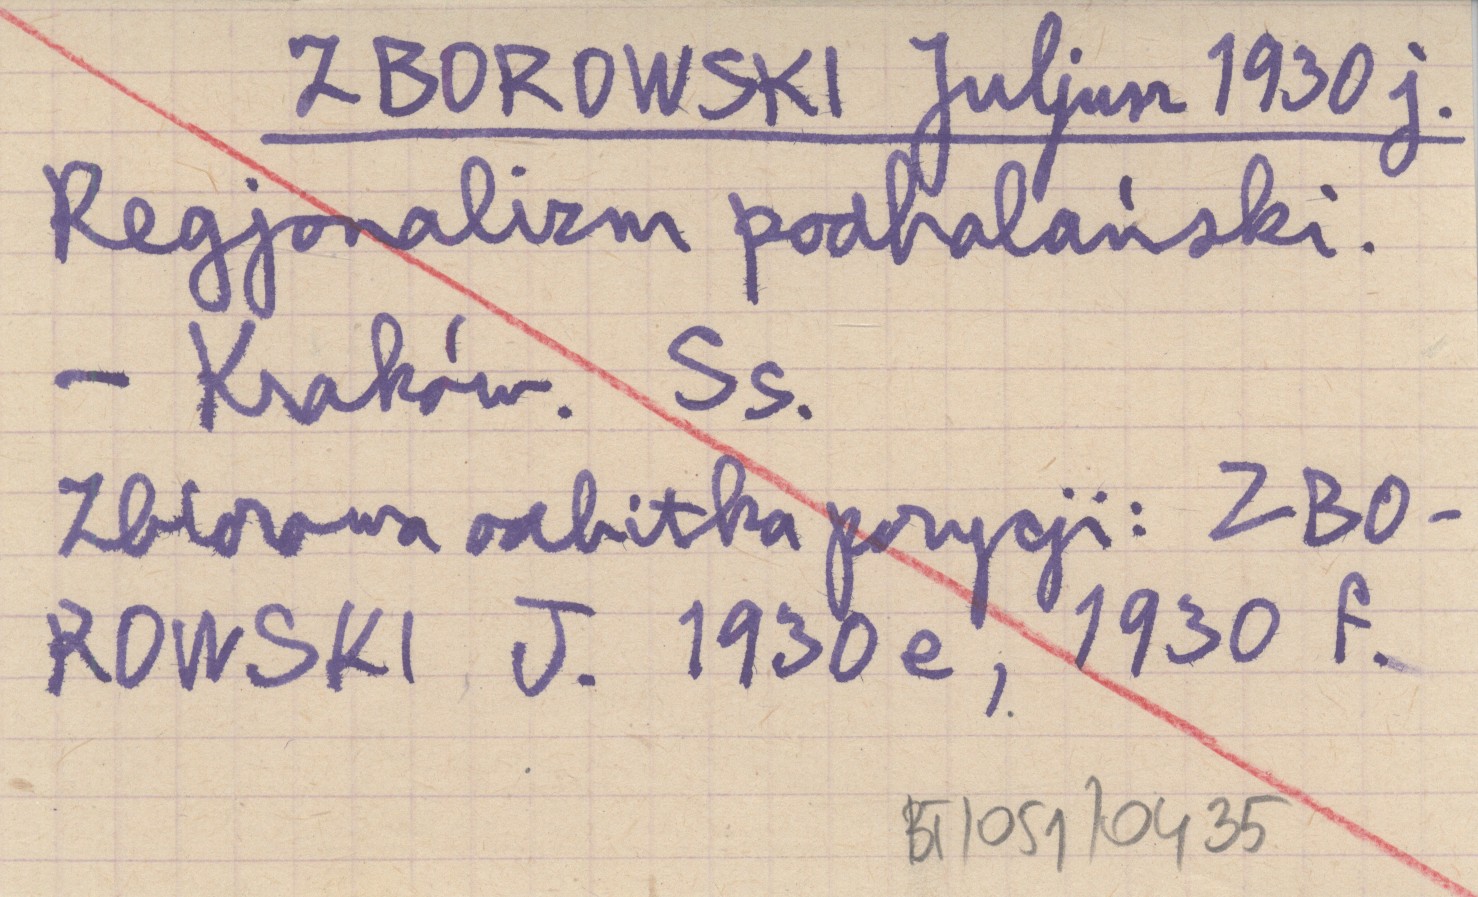 ZBOROWSKI Juljusz 1930 j.
Regjonalizm podhalański.
– Kraków. Ss.
Zbiorowa odbitka pozycji: ZBO-
ROWSKI J. 1930 e, 1930 f.
BT/051/0435